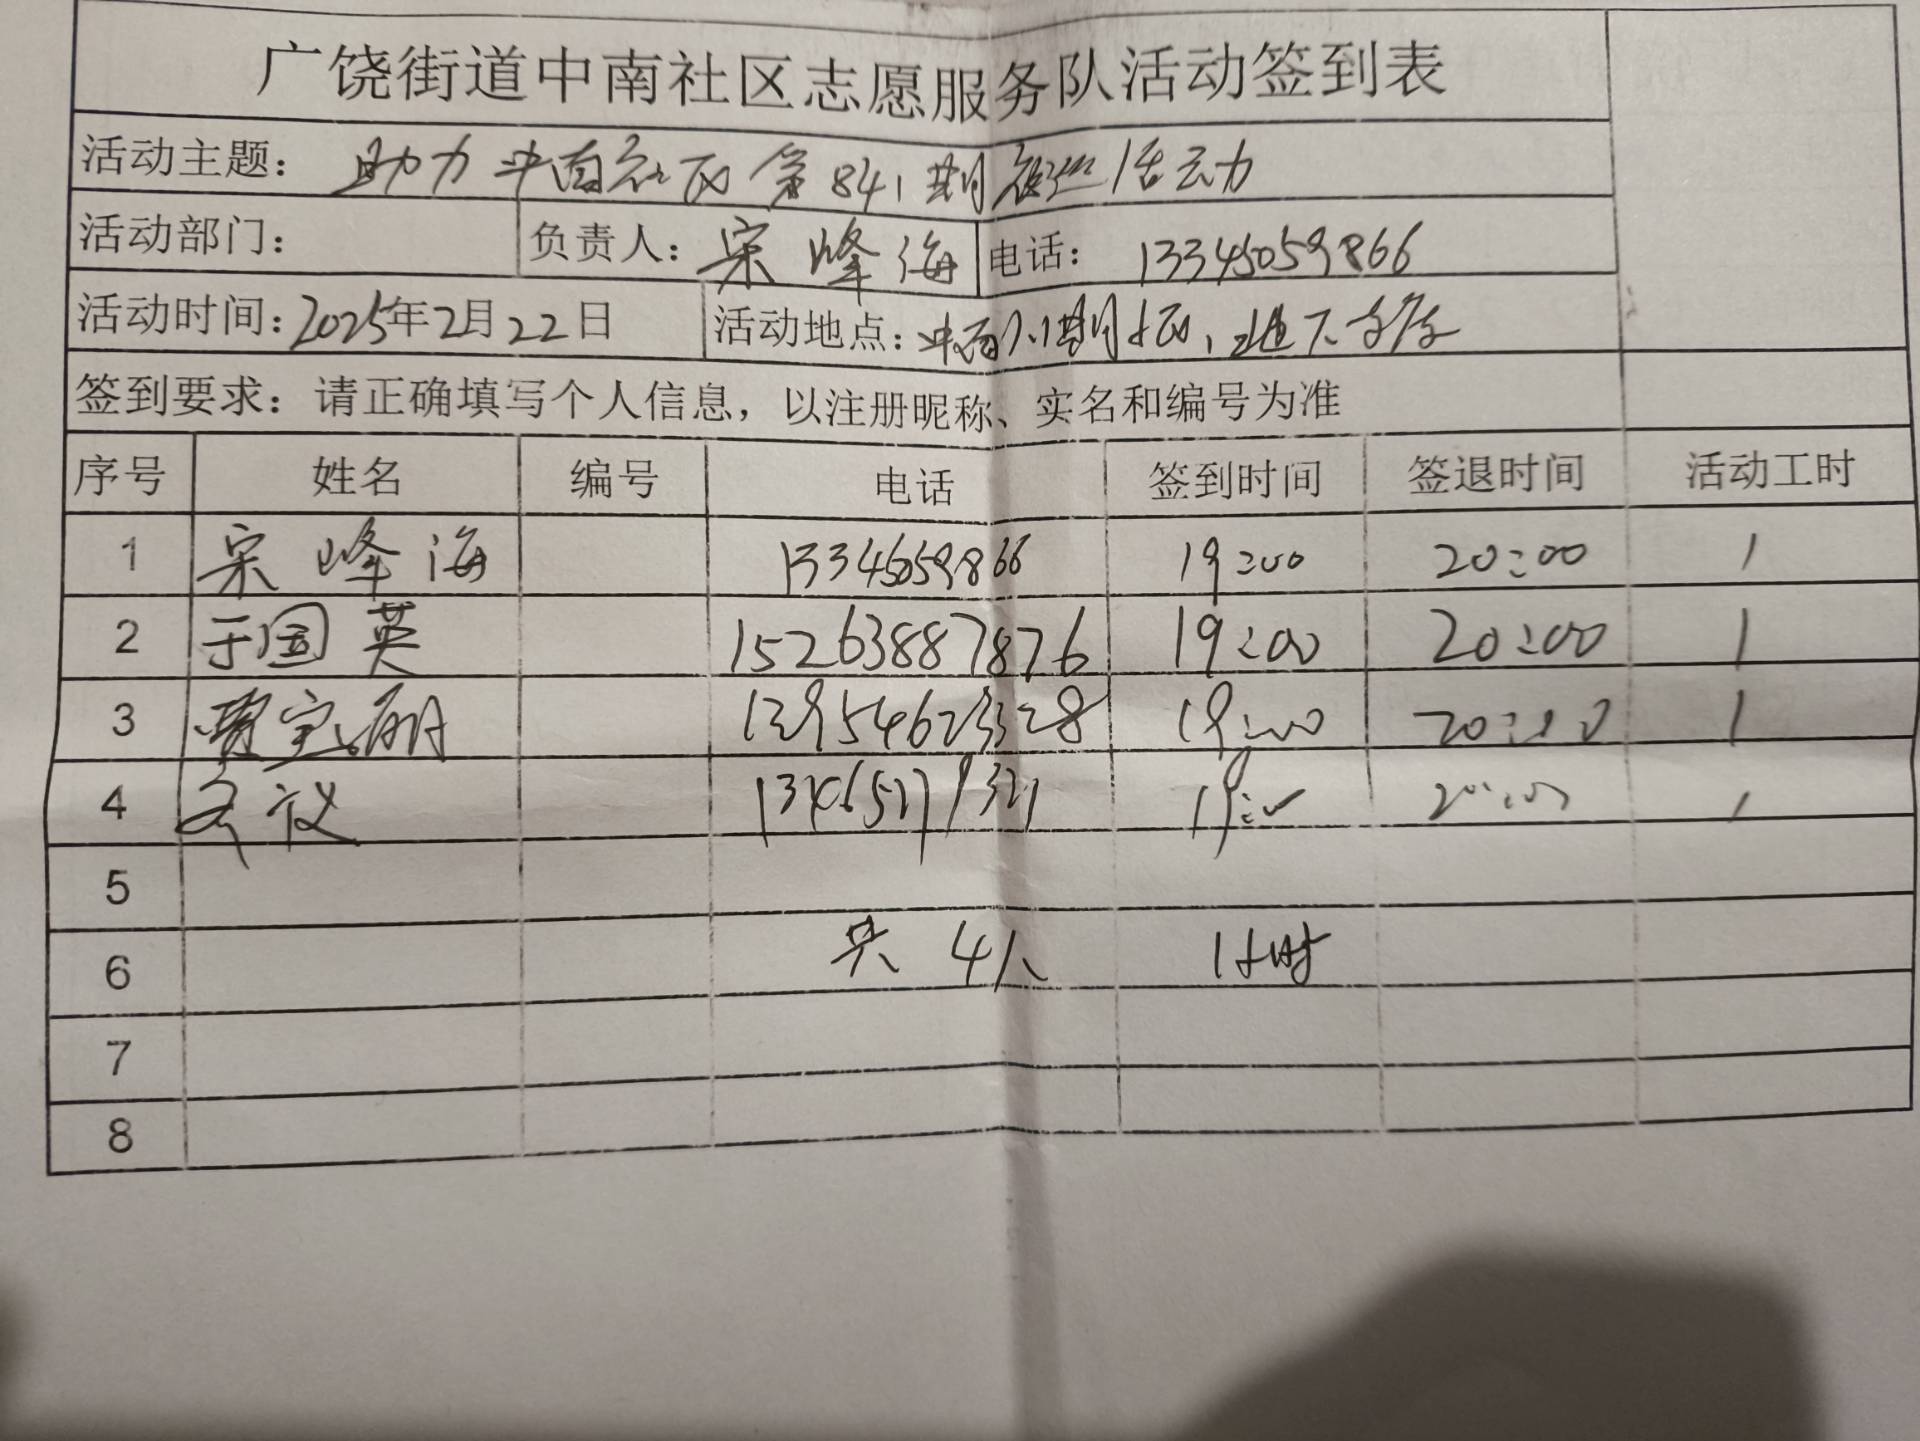 广饶街道中南社区志愿服务队活动签到表
活动主题： 助力中南社区第841期夜巡活动
活动部门： 负责人：宋峰海 电话：13345059866
活动时间：2025年2月22日 活动地点：中南 期 区，地下车库
签到要求：请正确填写个人信息，以注册昵称、实名和编号为准
序号 姓名 编号 电话 签到时间 签退时间 活动工时
1 宋峰海 13345059866 19:00 20:00 1
2 于国英 15263887876 19:00 20:00 1
3 贾宝丽 13954623328 19:00 20:00 1
4 19:00 20:00 1
5
6 共4人 1小时
7
8